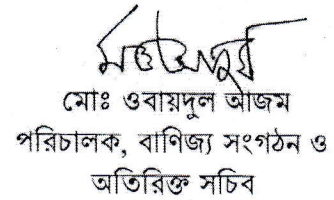 মোঃ ওবায়দুল আজম
পরিচালক, বাণিজ্য সংগঠন ও
অতিরিক্ত সচিব